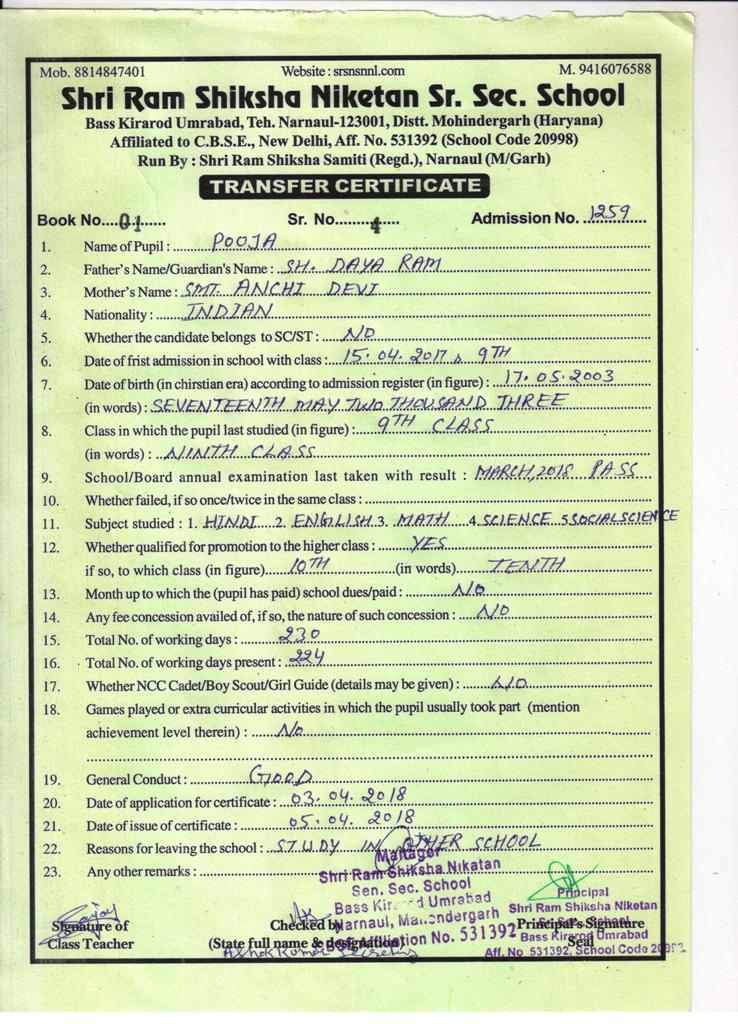 Mob. 8814847401 Website : srsnsnnl.com M. 9416076588
Shri Ram Shiksha Niketan Sr. Sec. School
Bass Kirarod Umrabad, Teh. Narnaul-123001, Distt. Mohindergarh (Haryana)
Affiliated to C.B.S.E., New Delhi, Aff. No. 531392 (School Code 20998)
Run By : Shri Ram Shiksha Samiti (Regd.), Narnaul (M/Garh)
TRANSFER CERTIFICATE
Book No....01...... Sr. No.........4..... Admission No. 1259
1. Name of Pupil : POOJA
2. Father's Name/Guardian's Name : SH. DAYA RAM
3. Mother's Name : SMT. ANCHI DEVI
4. Nationality : INDIAN
5. Whether the candidate belongs to SC/ST : NO
6. Date of frist admission in school with class : 15.04.2017 & 9TH
7. Date of birth (in chirstian era) according to admission register (in figure) : 17.05.2003
(in words) : SEVENTEENTH MAY TWO THOUSAND THREE
8. Class in which the pupil last studied (in figure) : 9TH CLASS
(in words) : NINTH CLASS
9. School/Board annual examination last taken with result : MARCH, 2018 PASS
10. Whether failed, if so once/twice in the same class :
11. Subject studied : 1. HINDI 2. ENGLISH 3. MATH 4. SCIENCE 5 SOCIAL SCIENCE
12. Whether qualified for promotion to the higher class : YES
if so, to which class (in figure) 10TH (in words) TENTH
13. Month up to which the (pupil has paid) school dues/paid : NO
14. Any fee concession availed of, if so, the nature of such concession : NO
15. Total No. of working days : 230
16. Total No. of working days present : 224
17. Whether NCC Cadet/Boy Scout/Girl Guide (details may be given) : NO
18. Games played or extra curricular activities in which the pupil usually took part (mention
achievement level therein) : No
19. General Conduct : GOOD
20. Date of application for certificate : 03.04.2018
21. Date of issue of certificate : 05.04.2018
22. Reasons for leaving the school : STUDY IN OTHER SCHOOL
23. Any other remarks :
Manager
Shri Ram Shiksha Nikatan
Sen. Sec. School
Bass Umrabad
Narnaul,
Affiliation No. 531392
Principal
Shri Ram Shiksha Niketan
Sr. Sec. School
Bass Kirarod Umrabad
Aff. No 531392, School Code
Signature of
Class Teacher
Checked by
(State full name & designation)
Ashok Kumar
Principal's Signature
Seal